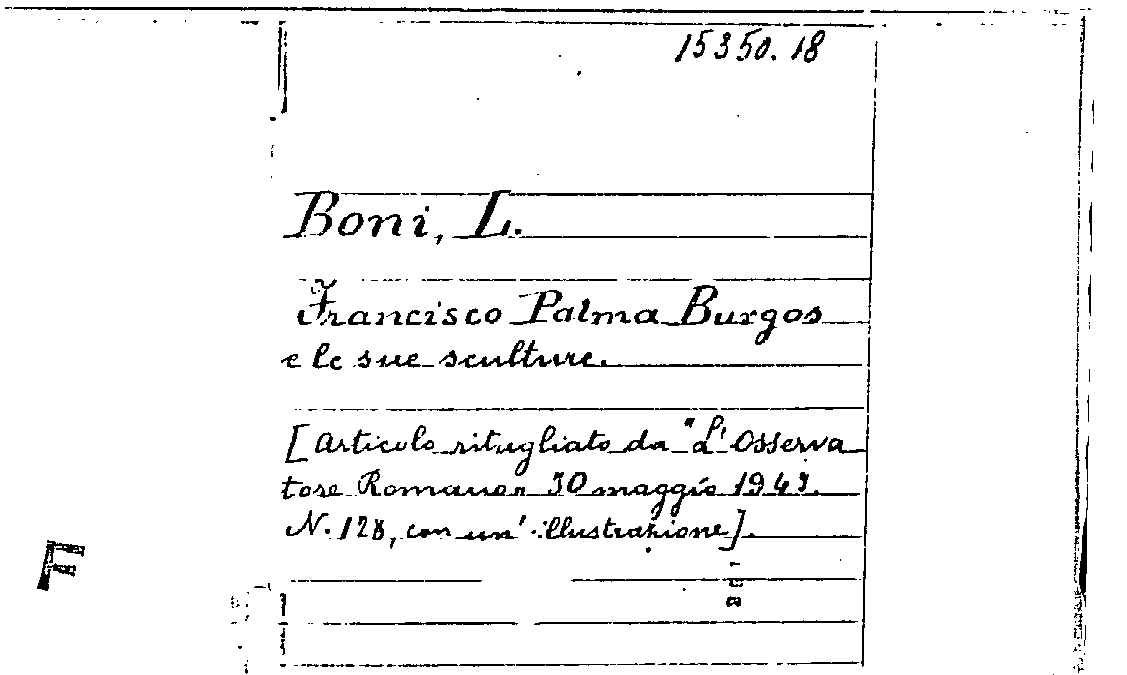 15350.18
Boni, L.
Francisco Palma Burgos
e le sue sculture.
[Articolo ritagliato da "L'Osserva
tore Romano" 30 maggio 1947.
N. 128, con un' illustrazione].
F